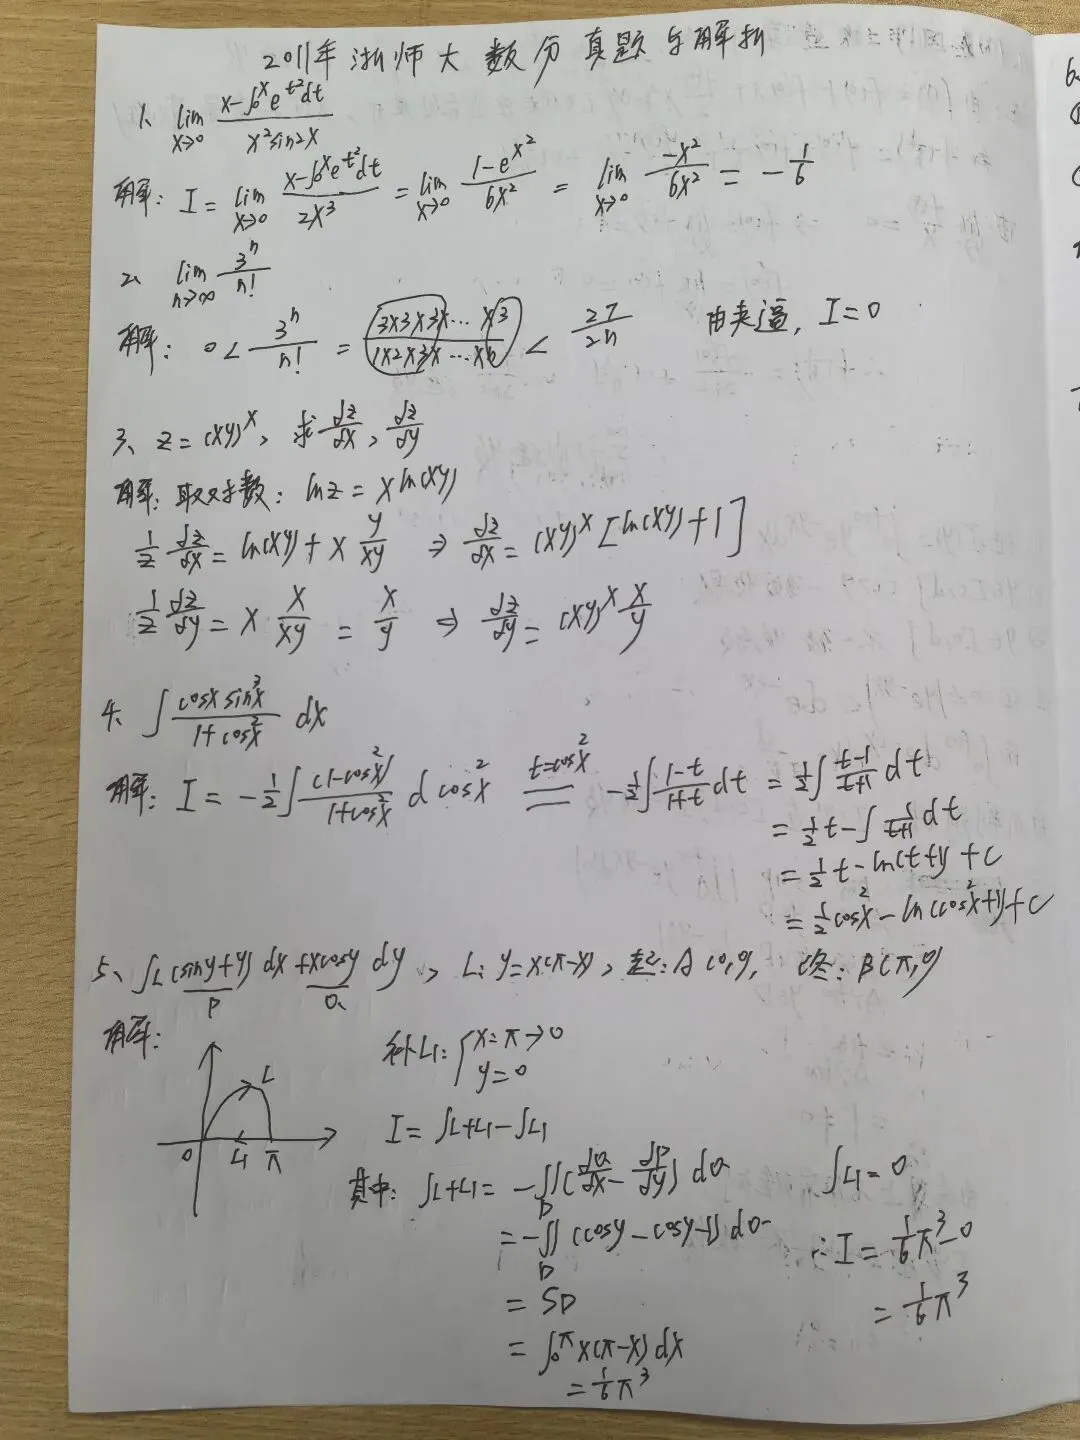 2011年 浙师大 数分真题与解析
1、 lim_{x→0} (x-∫₀ˣe^{t²}dt)/(x²sin2x)
解: I = lim_{x→0} (x-∫₀ˣe^{t²}dt)/(2x³) = lim_{x→0} (1-e^{x²})/(6x²) = lim_{x→0} (-x²)/(6x²) = -1/6
2、 lim_{n→∞} 3ⁿ/n!
解: 0 < 3ⁿ/n! = (3×3×3×...×3)/(1×2×3×...×n) < 27/2n 由夹逼, I=0
3、 z=(xy)ˣ, 求 dz/dx, dz/dy
解: 取对数: lnz = xln(xy)
1/z dz/dx = ln(xy) + x y/xy ⇒ dz/dx = (xy)ˣ[ln(xy)+1]
1/z dz/dy = x x/xy = x/y ⇒ dz/dy = (xy)ˣ x/y
4、 ∫ (cosx sin³x)/(1+cos²x) dx
解: I = -1/2∫ (1-cos²x)/(1+cos²x) d cos²x =(t=cos²x)= -1/2∫ (1-t)/(1+t) dt = 1/2∫ (t-1)/(t+1) dt
= 1/2t - ∫ 1/(t+1) dt
= 1/2t - ln(t+1) + C
= 1/2cos²x - ln(cos²x+1) + C
5、 ∫_L (siny+y) dx + xcosy dy, L: y=x(π-x), 起: A(0,0), 终: B(π,0)
P Q
解:
补L₁: { x=π→0
y=0
L
0 L₁ π
I = ∫_{L+L₁} - ∫_{L₁}
其中: ∫_{L+L₁} = -∬_D (dQ/dx - dP/dy) dσ ∫_{L₁} = 0
= -∬_D (cosy - cosy - 1) dσ ∴ I = 1/6π³ - 0
= S_D = 1/6π³
= ∫₀^π x(π-x) dx
= 1/6π³